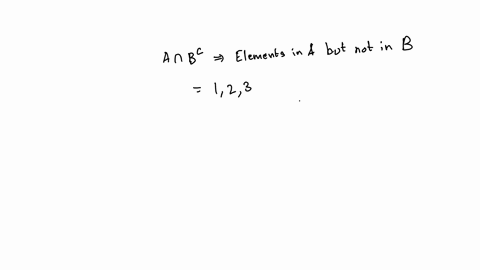 A ∩ B^c ⇒ Elements in A but not in B
= 1, 2, 3